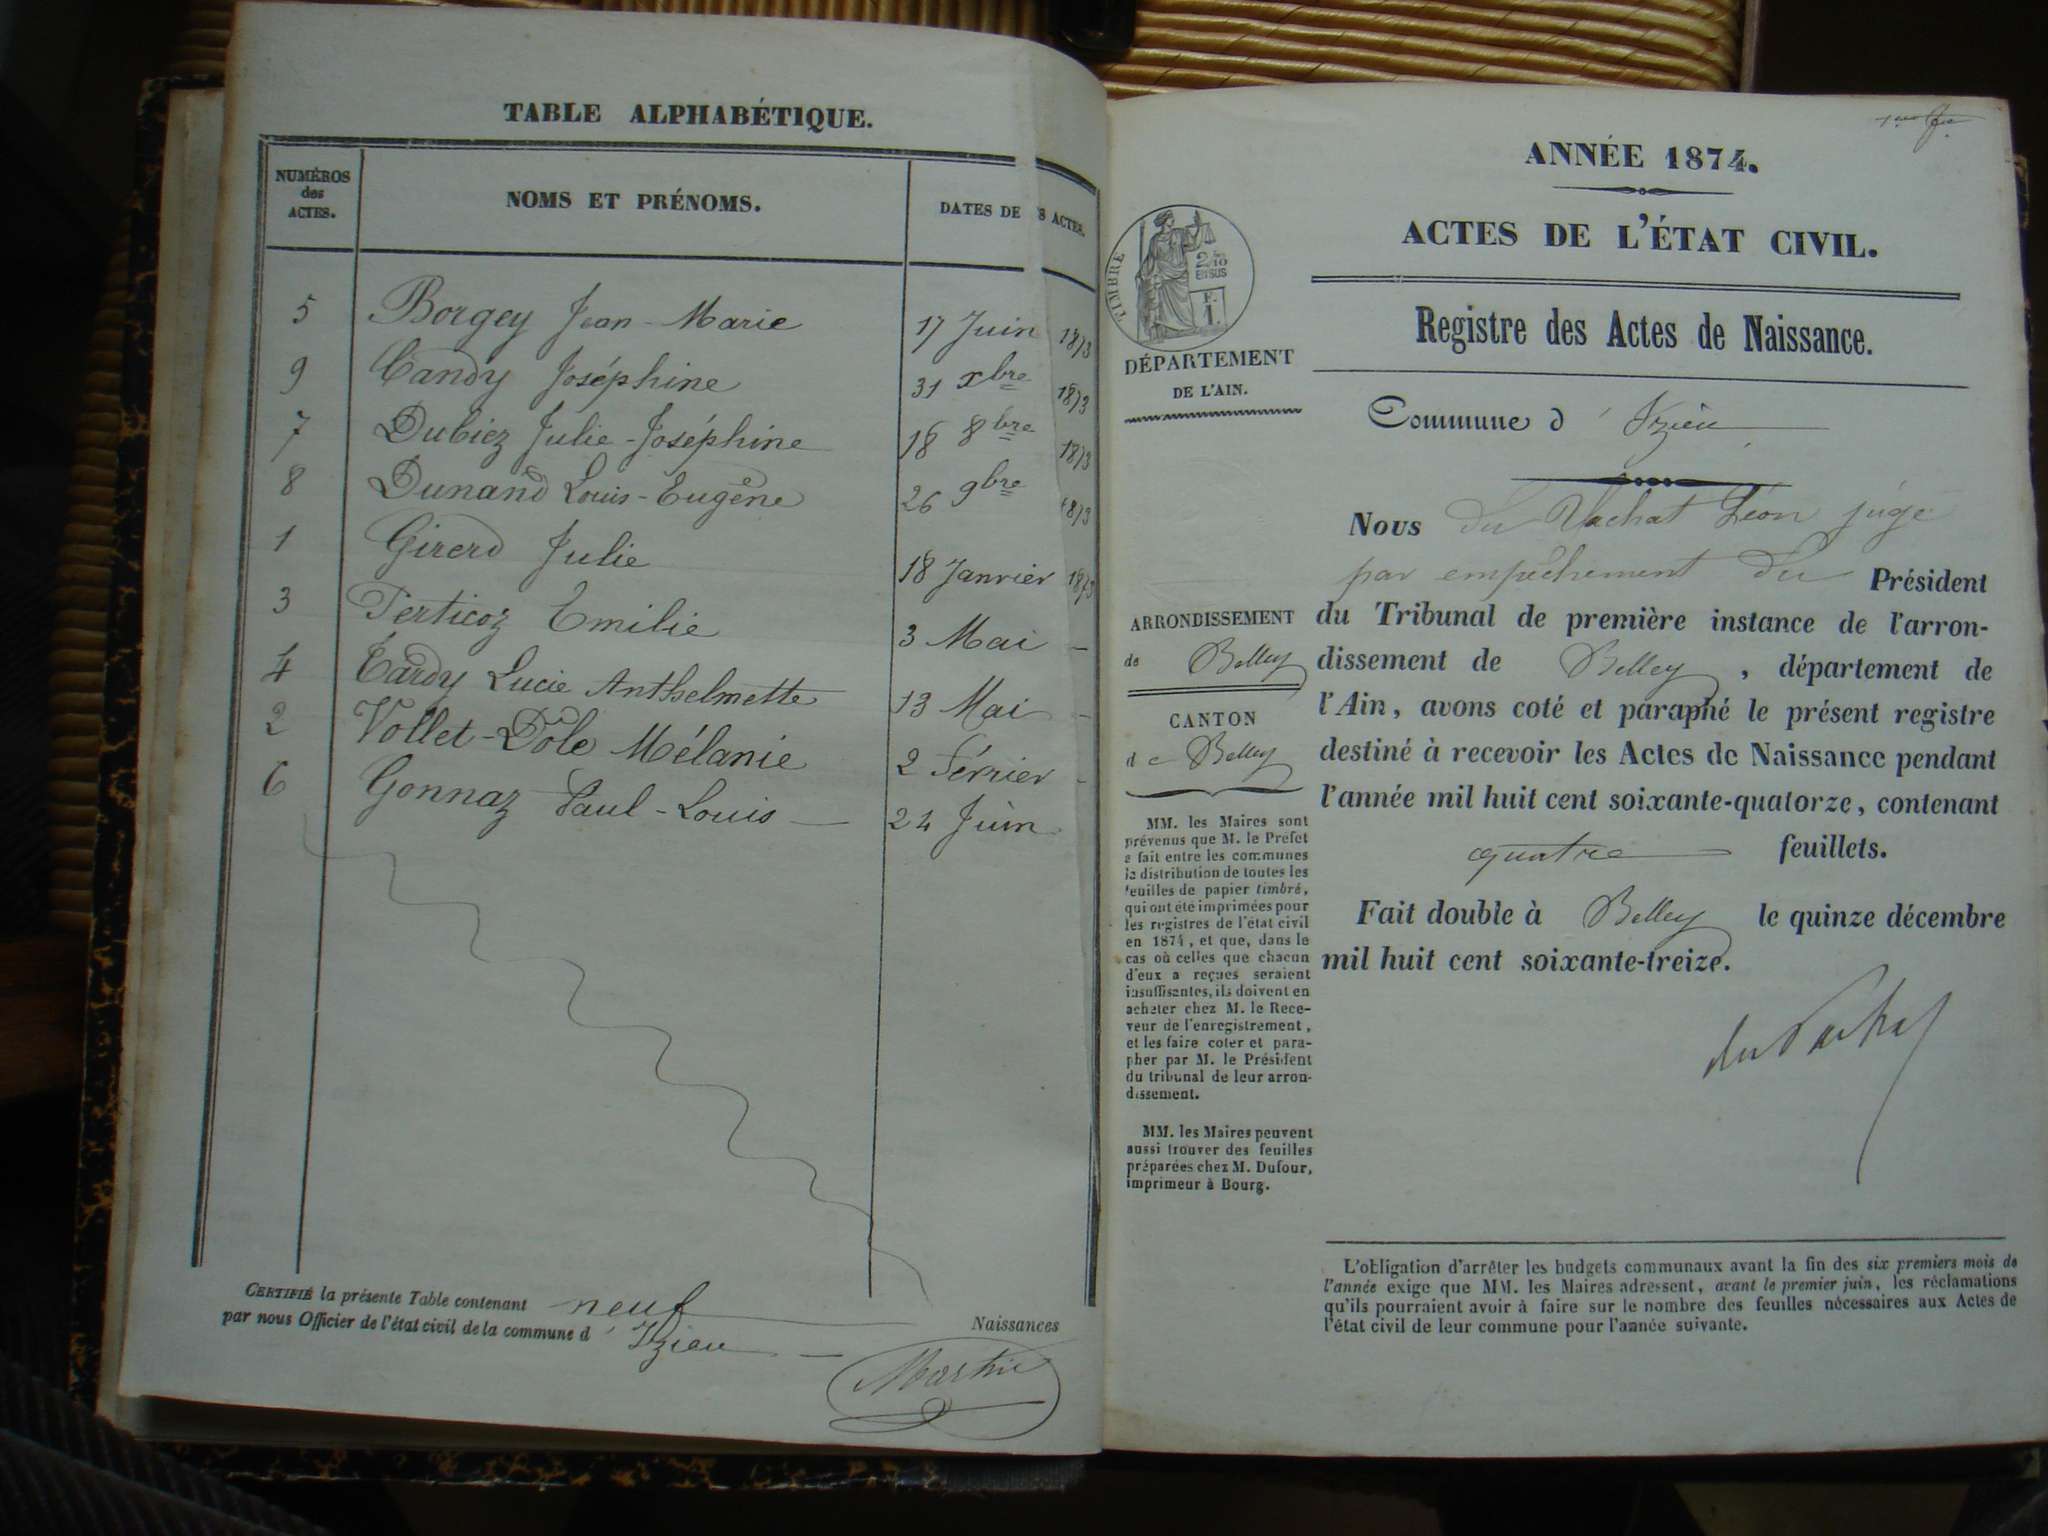 TABLE ALPHABÉTIQUE.
NUMÉROS
des
ACTES.
NOMS ET PRÉNOMS.
DATES DE S ACTES.
5 Borgey Jean-Marie 17 Juin 1873
9 Candy Joséphine 31 xbre 1873
7 Dubiez Julie-Joséphine 18 8bre 1873
8 Dunand Louis-Eugène 26 9bre 1873
1 Girerd Julie 18 Janvier 1873
3 Perticoz Emilie 3 Mai -
4 Tardy Lucie Anthelmette 13 Mai -
2 Vollet-Dôle Mélanie 2 Février -
6 Gonnaz Paul-Louis 24 Juin
CERTIFIÉ la présente Table contenant neuf Naissances
par nous Officier de l'état civil de la commune d'Izieu
Martin
ANNÉE 1874.
ACTES DE L'ÉTAT CIVIL.
Registre des Actes de Naissance.
TIMBRE
2/10
EN SUS
F.
1.
DÉPARTEMENT
DE L'AIN.
Commune d'Izieu
Nous du Vachat Léon juge
par empêchement du Président
du Tribunal de première instance de l'arron-
dissement de Belley, département de
l'Ain, avons coté et paraphé le présent registre
destiné à recevoir les Actes de Naissance pendant
l'année mil huit cent soixante-quatorze, contenant
quatre feuillets.
Fait double à Belley le quinze décembre
mil huit cent soixante-treize.
du Vachat
ARRONDISSEMENT
de Belley
CANTON
de Belley
MM. les Maires sont
prévenus que M. le Préfet
a fait entre les communes
la distribution de toutes les
feuilles de papier timbré,
qui ont été imprimées pour
les registres de l'état civil
en 1874, et que, dans le
cas où celles que chacun
d'eux a reçues seraient
insuffisantes, ils doivent en
acheter chez M. le Rece-
veur de l'enregistrement,
et les faire coter et para-
pher par M. le Président
du tribunal de leur arron-
dissement.
MM. les Maires peuvent
aussi trouver des feuilles
préparées chez M. Dufour,
imprimeur à Bourg.
L'obligation d'arrêter les budgets communaux avant la fin des six premiers mois de
l'année exige que MM. les Maires adressent, avant le premier juin, les réclamations
qu'ils pourraient avoir à faire sur le nombre des feuilles nécessaires aux Actes de
l'état civil de leur commune pour l'année suivante.